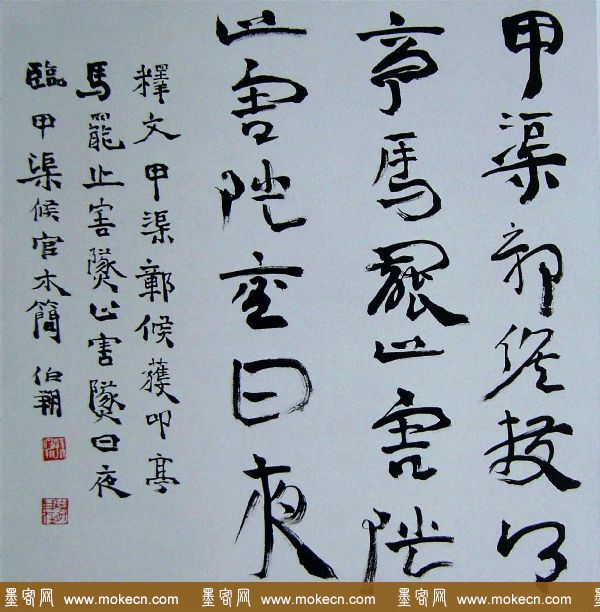 甲渠鄣候獲叩
亭馬罷止害隧
止害隧坐日夜
釋文甲渠鄣候獲叩亭
馬罷止害隧止害隧日夜
臨甲渠候官木簡 伯翔
墨客网 www.mokecn.com 墨客网 www.mokecn.com 墨客网 www.mokecn.com 墨客网